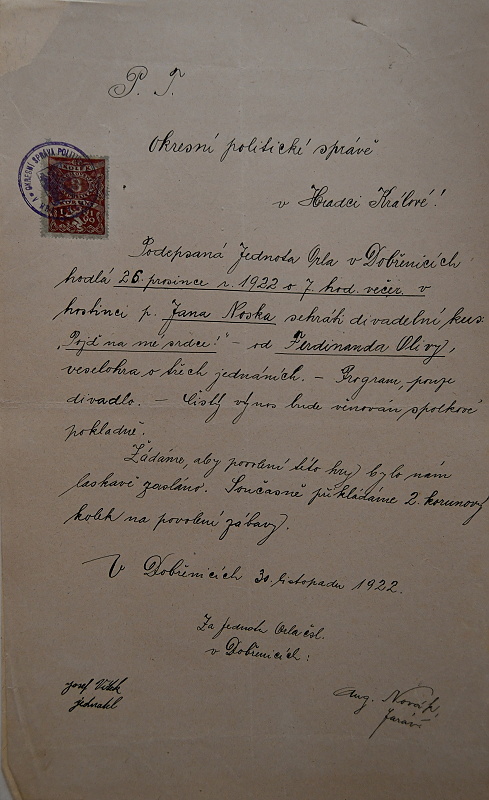 P. T.
Okresní politické správě
v Hradci Králové!
Podepsaná Jednota Orla v Dobřenicích
hodlá 26. prosince r. 1922 o 7. hod. večer v
hostinci p. Jana Noska sehráti divadelní kus:
"Pojď na mé srdce!" – od Ferdinanda Olivy,
veselohra o třech jednáních. – Program, pouze
divadlo. – Čistý výnos bude věnován spolkové
pokladně.
Žádáme, aby povolení této hry bylo nám
laskavě zasláno. Současně přikládáme 2. korunový
kolek na povolení zábavy.
V Dobřenicích 30. listopadu 1922.
Za Jednotu Orla čsl.
v Dobřenicích:
Josef Vítek
jednatel
Aug. Novák,
farář
OKRESNÍ SPRÁVA POLITICKÁ
3